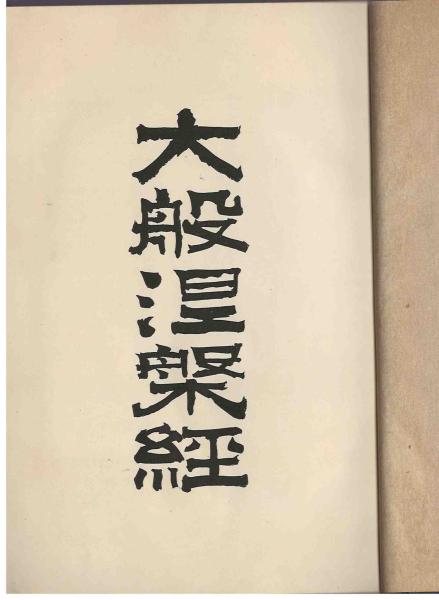 大般涅槃經